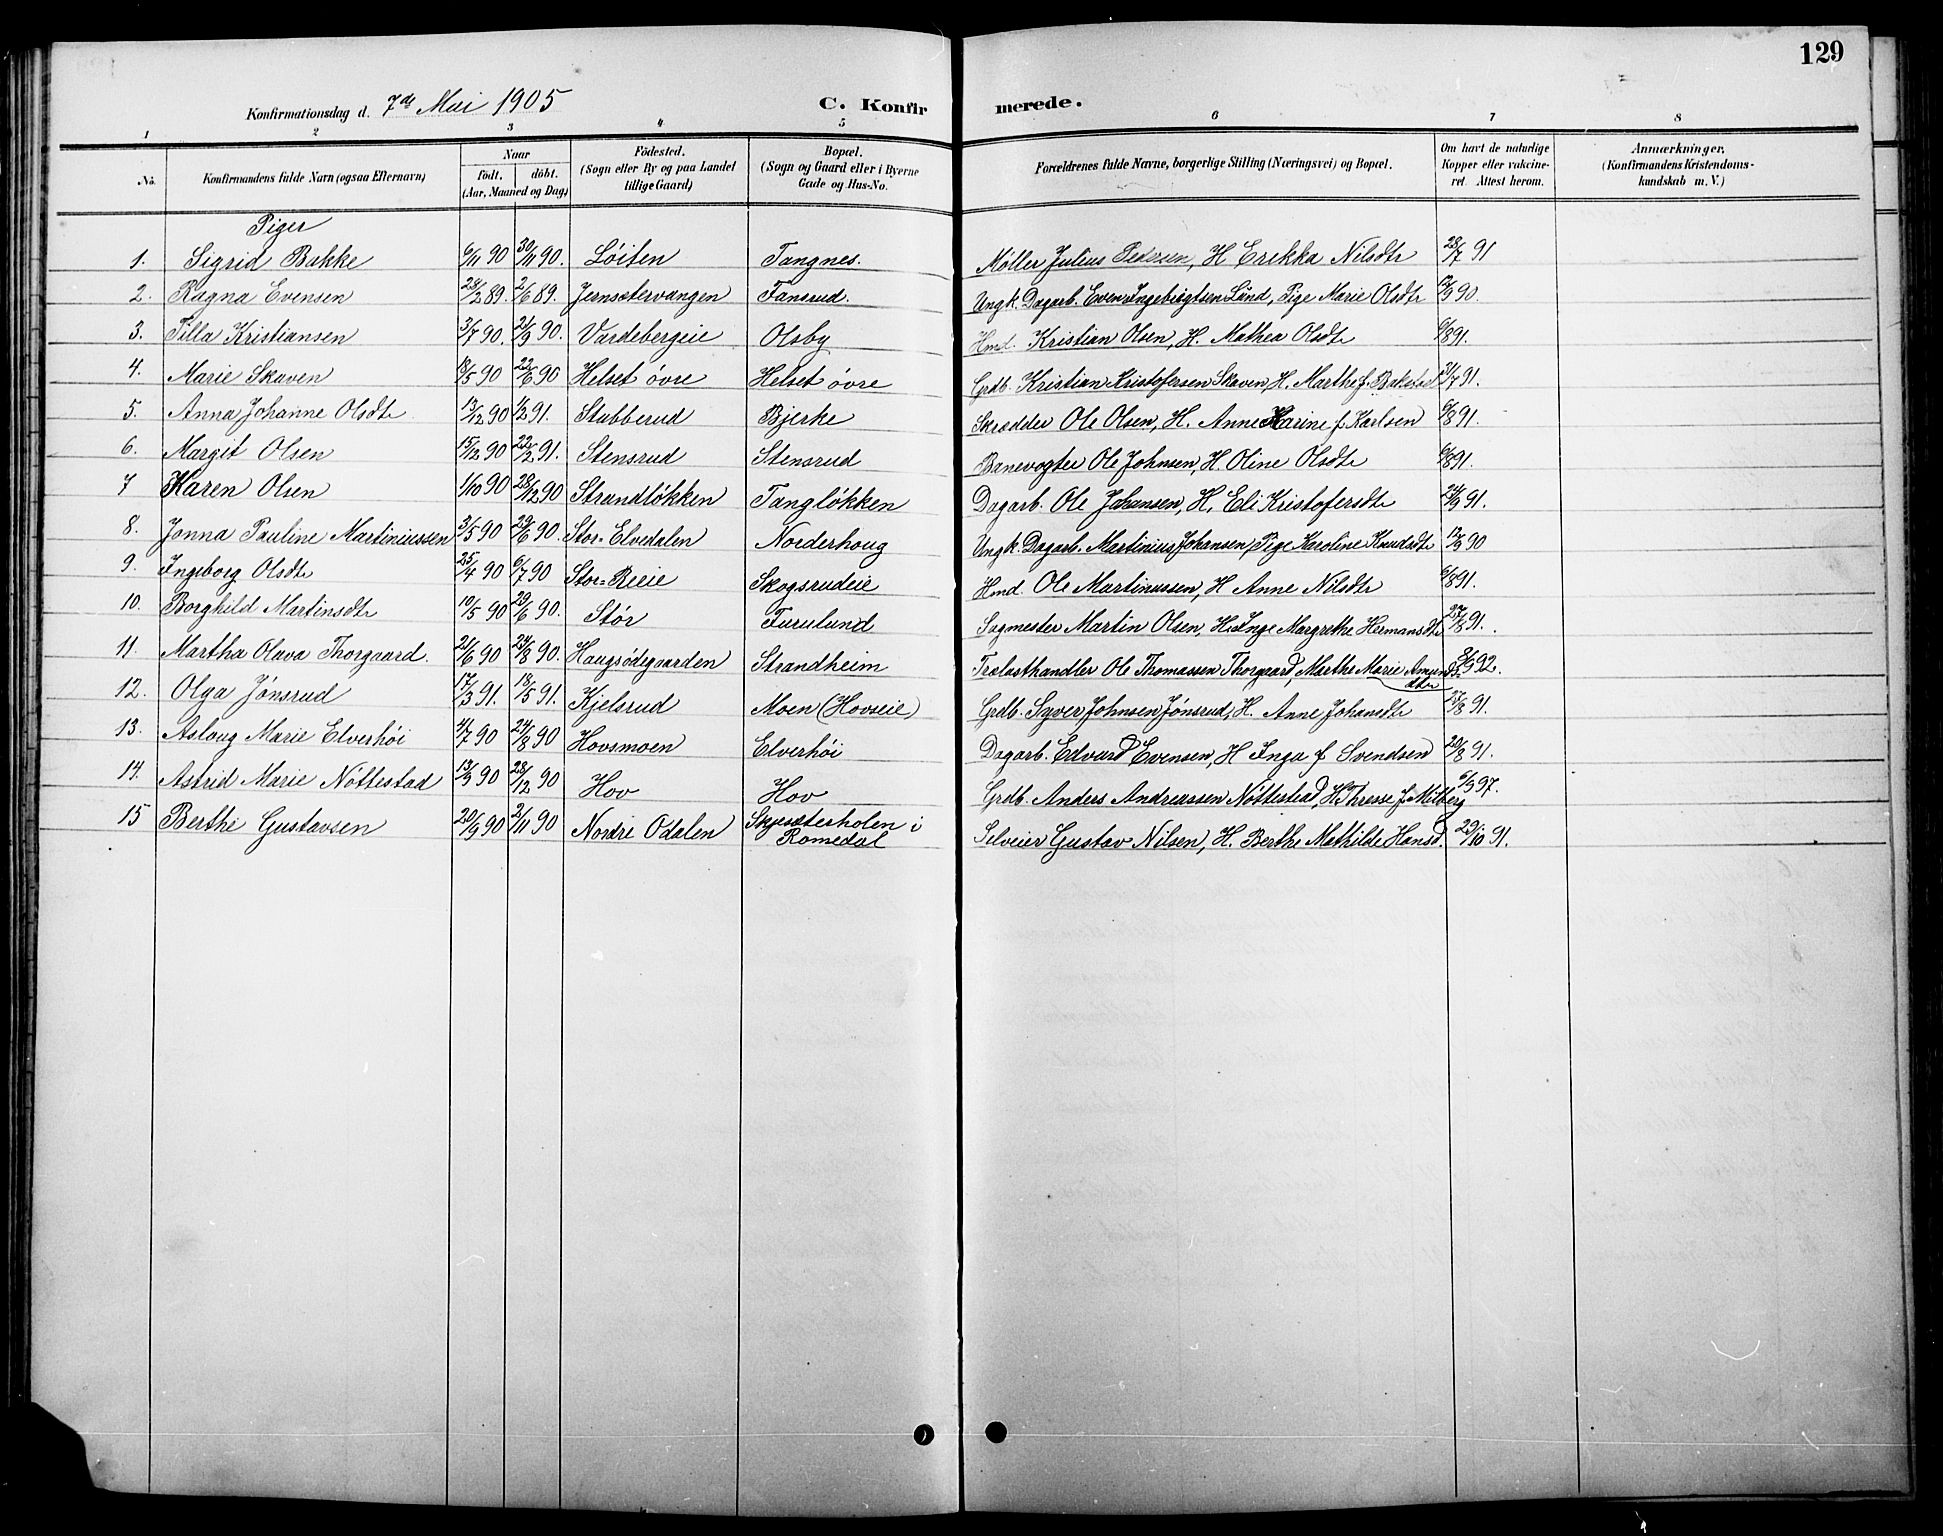 129
Konfirmationsdag d. 7de Mai 1905 C. Konfirmerede.
1 2 3 4 5 6 7 8
No. Konfirmandens fulde Navn (ogsaa Efternavn) Naar født. døbt. (Aar, Maaned og Dag) Födested. (Sogn eller By og paa Landet tillige Gaard) Bopæl. (Sogn og Gaard eller i Byerne Gade og Hus-No. Forældrenes fulde Navne, borgerlige Stilling (Næringsvei) og Bopæl. Om havt de naturlige Kopper eller vakcineret. Attest herom. Anmærkninger. (Konfirmandens Kristendomskundskab m. V.)
Piger
1. Sigrid Bakke 6/11 90 30/11 90. Löiten Tangnes. Møller Julius Pedersen, H Erikka Nilsdtr 28/7 91
2. Ragna Evensen 28/2 89. 2/6 89. Jernsætervangen Fansrud. Ungk. Dagarb. Even Ingebrigtsen Lund, Pige Marie Olsdtr 90.
3. Tilla Kristiansen 3/7 90. 21/9 90. Vardebergeie Olsby Hmd. Kristian Olsen, H. Mathea Olsdtr 6/8 91.
4. Marie Skaven 18/5 90 22/6 90 Helset övre Helset övre Grdb. Kristian Kristofersen Skaven, H. Marthe f. Bakstad 21/7 91.
5. Anna Johanne Olsdtr 13/12 90 1/2 91. Stubberud Bjerke Skrædder Ole Olsen, H. Anne Karine f. Karlsen 6/8 91.
6. Margit Olsen 15/12 90 22/2 91. Stensrud Stensrud Banevogter Ole Johnsen, H. Oline Olsdtr 6/8 91.
7 Karen Olsen 1/10 90 28/12 90 Strandlökken Tanglökken Dagarb. Ole Johansen, H. Eli Kristofersdtr 24/9 91.
8. Jonna Pauline Martiniussen 3/5 90 29/6 90. Stor-Elvedalen Norderhoug Ungk. Dagarb. Martinius Johansen, Pige Karoline Knudsdtr 12/9 90
9. Ingeborg Olsdtr 25/4 90 6/7 90 Stor-Reeie Skogsrudeie Hmd. Ole Martinussen, H Anne Nilsdtr 6/8 91.
10. Borghild Martinsdtr 10/5 90 29/6 90. Stör Furulund Sagmester Martin Olsen, H. Inge Margrethe Hermansdtr 27/8 91.
11. Martha Olava Thorgaard. 21/6 90 24/8 90. Haugsödegaarden Strandheim Trælasthandler Ole Thomassen Thorgaard, Marthe Marie Amundsdtr 92.
12. Olga Jønsrud 17/3 91. 18/5 91. Kjelsrud Moen (Hovseie) Grdb. Syver Johnsen Jønsrud, H. Anne Johansdtr 27/8 91.
13. Aslaug Marie Elverhöi 4/7 90 24/8 90 Hovsmoen Elverhöi Dagarb. Edvard Evensen, H Inga f Svendsen 20/8 91.
14. Astrid Marie Nöttestad 13/9 90 28/12 90 Hov Hov Grdb. Anders Andreassen Nöttestad, H. Threse f. Milberg 6/9 97.
15 Berthe Gustavsen 20/9 90 2/11 90 Nordre Odalen Skjesæterholen i Romedal Selveier Gustav Nilsen, H. Berthe Mathilde Hansd. 29/10 91.